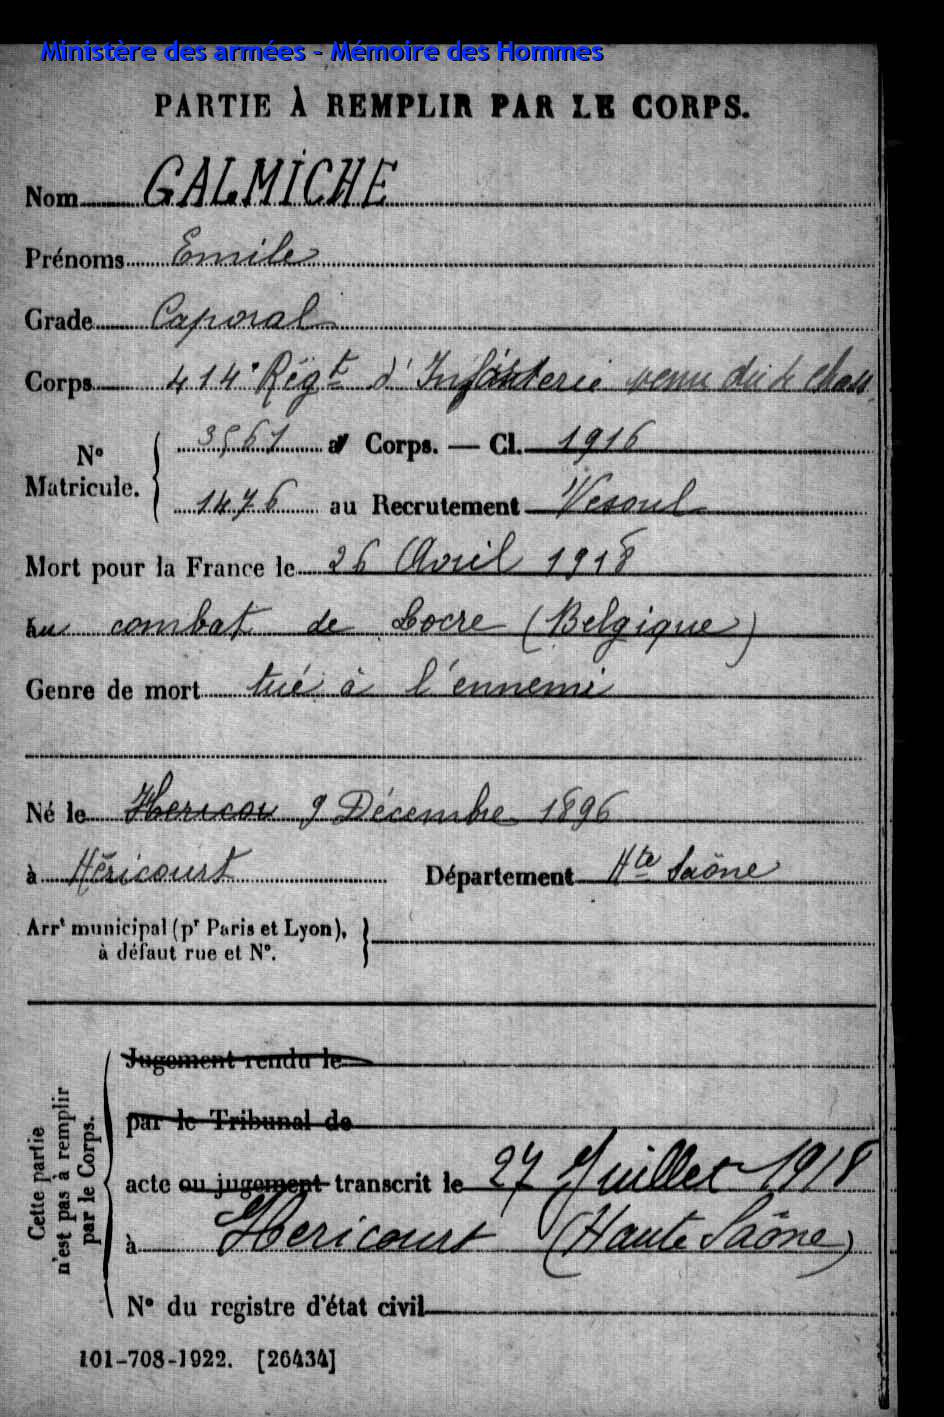 Ministère des armées - Mémoire des Hommes
PARTIE À REMPLIR PAR LE CORPS.
Nom GALMICHE
Prénoms Emile
Grade Caporal
Corps 414e Régt d'Infanterie venu du 4 chass.
3561 au Corps. — Cl. 1916
N° Matricule.
1476 au Recrutement Vesoul
Mort pour la France le 26 Avril 1918
au combat de Locre (Belgique)
Genre de mort tué à l'ennemi
Né le Hericou 9 Décembre 1896
à Héricourt Département Hte Saône
Arrt municipal (pr Paris et Lyon),
à défaut rue et N°.
Cette partie
n'est pas à remplir
par le Corps.
Jugement rendu le
par le Tribunal de
acte ou jugement transcrit le 27 Juillet 1918
à Hericourt (Haute Saône)
N° du registre d'état civil
101-708-1922. [26434]